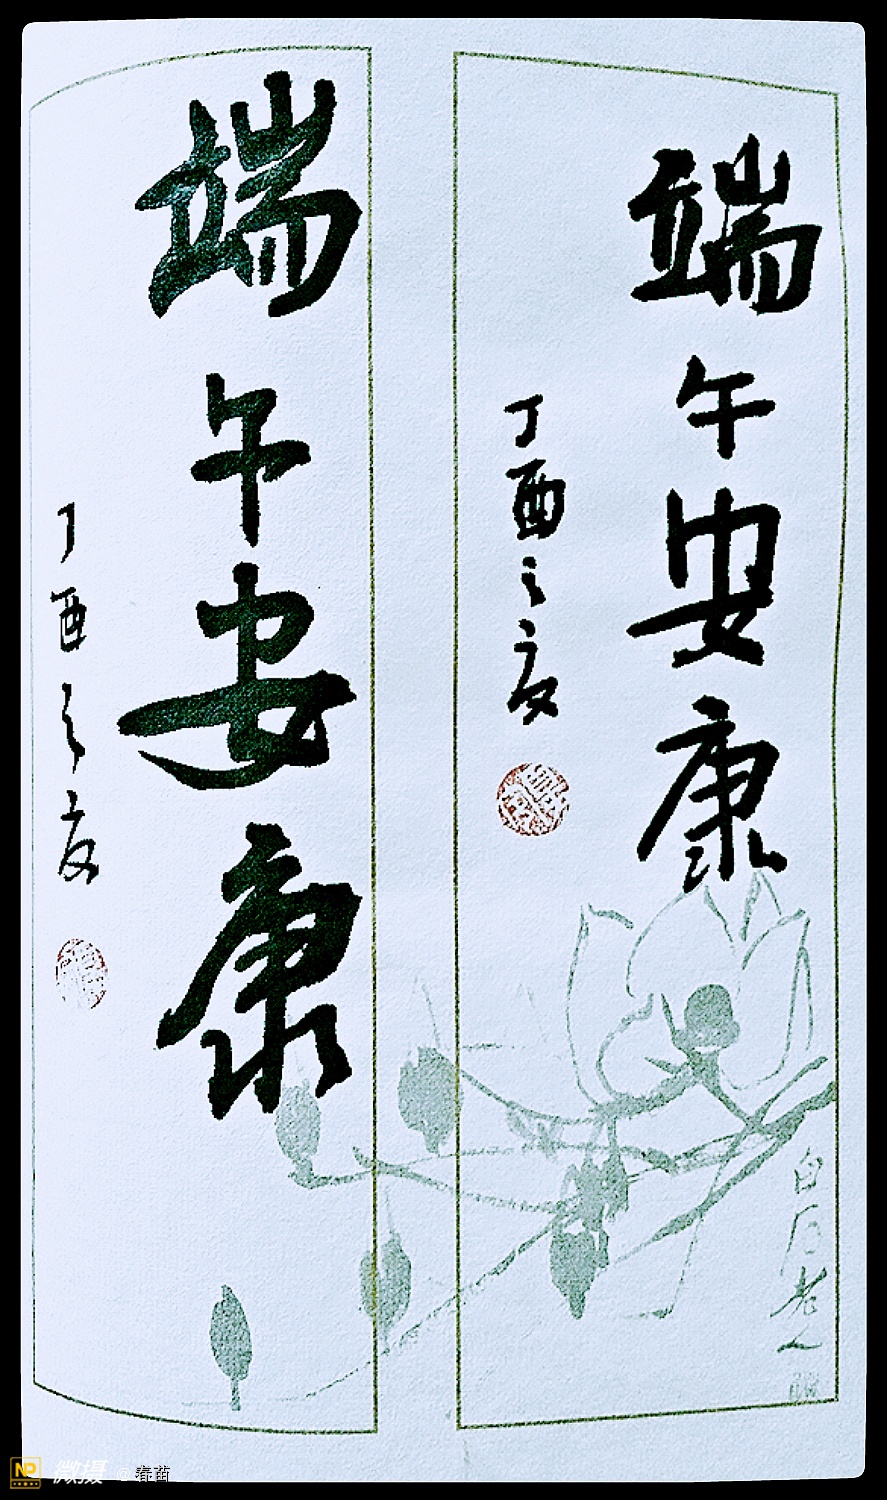 端午安康
丁酉之夏
端午安康
丁酉之夏
白石老人
微摄 @春苗